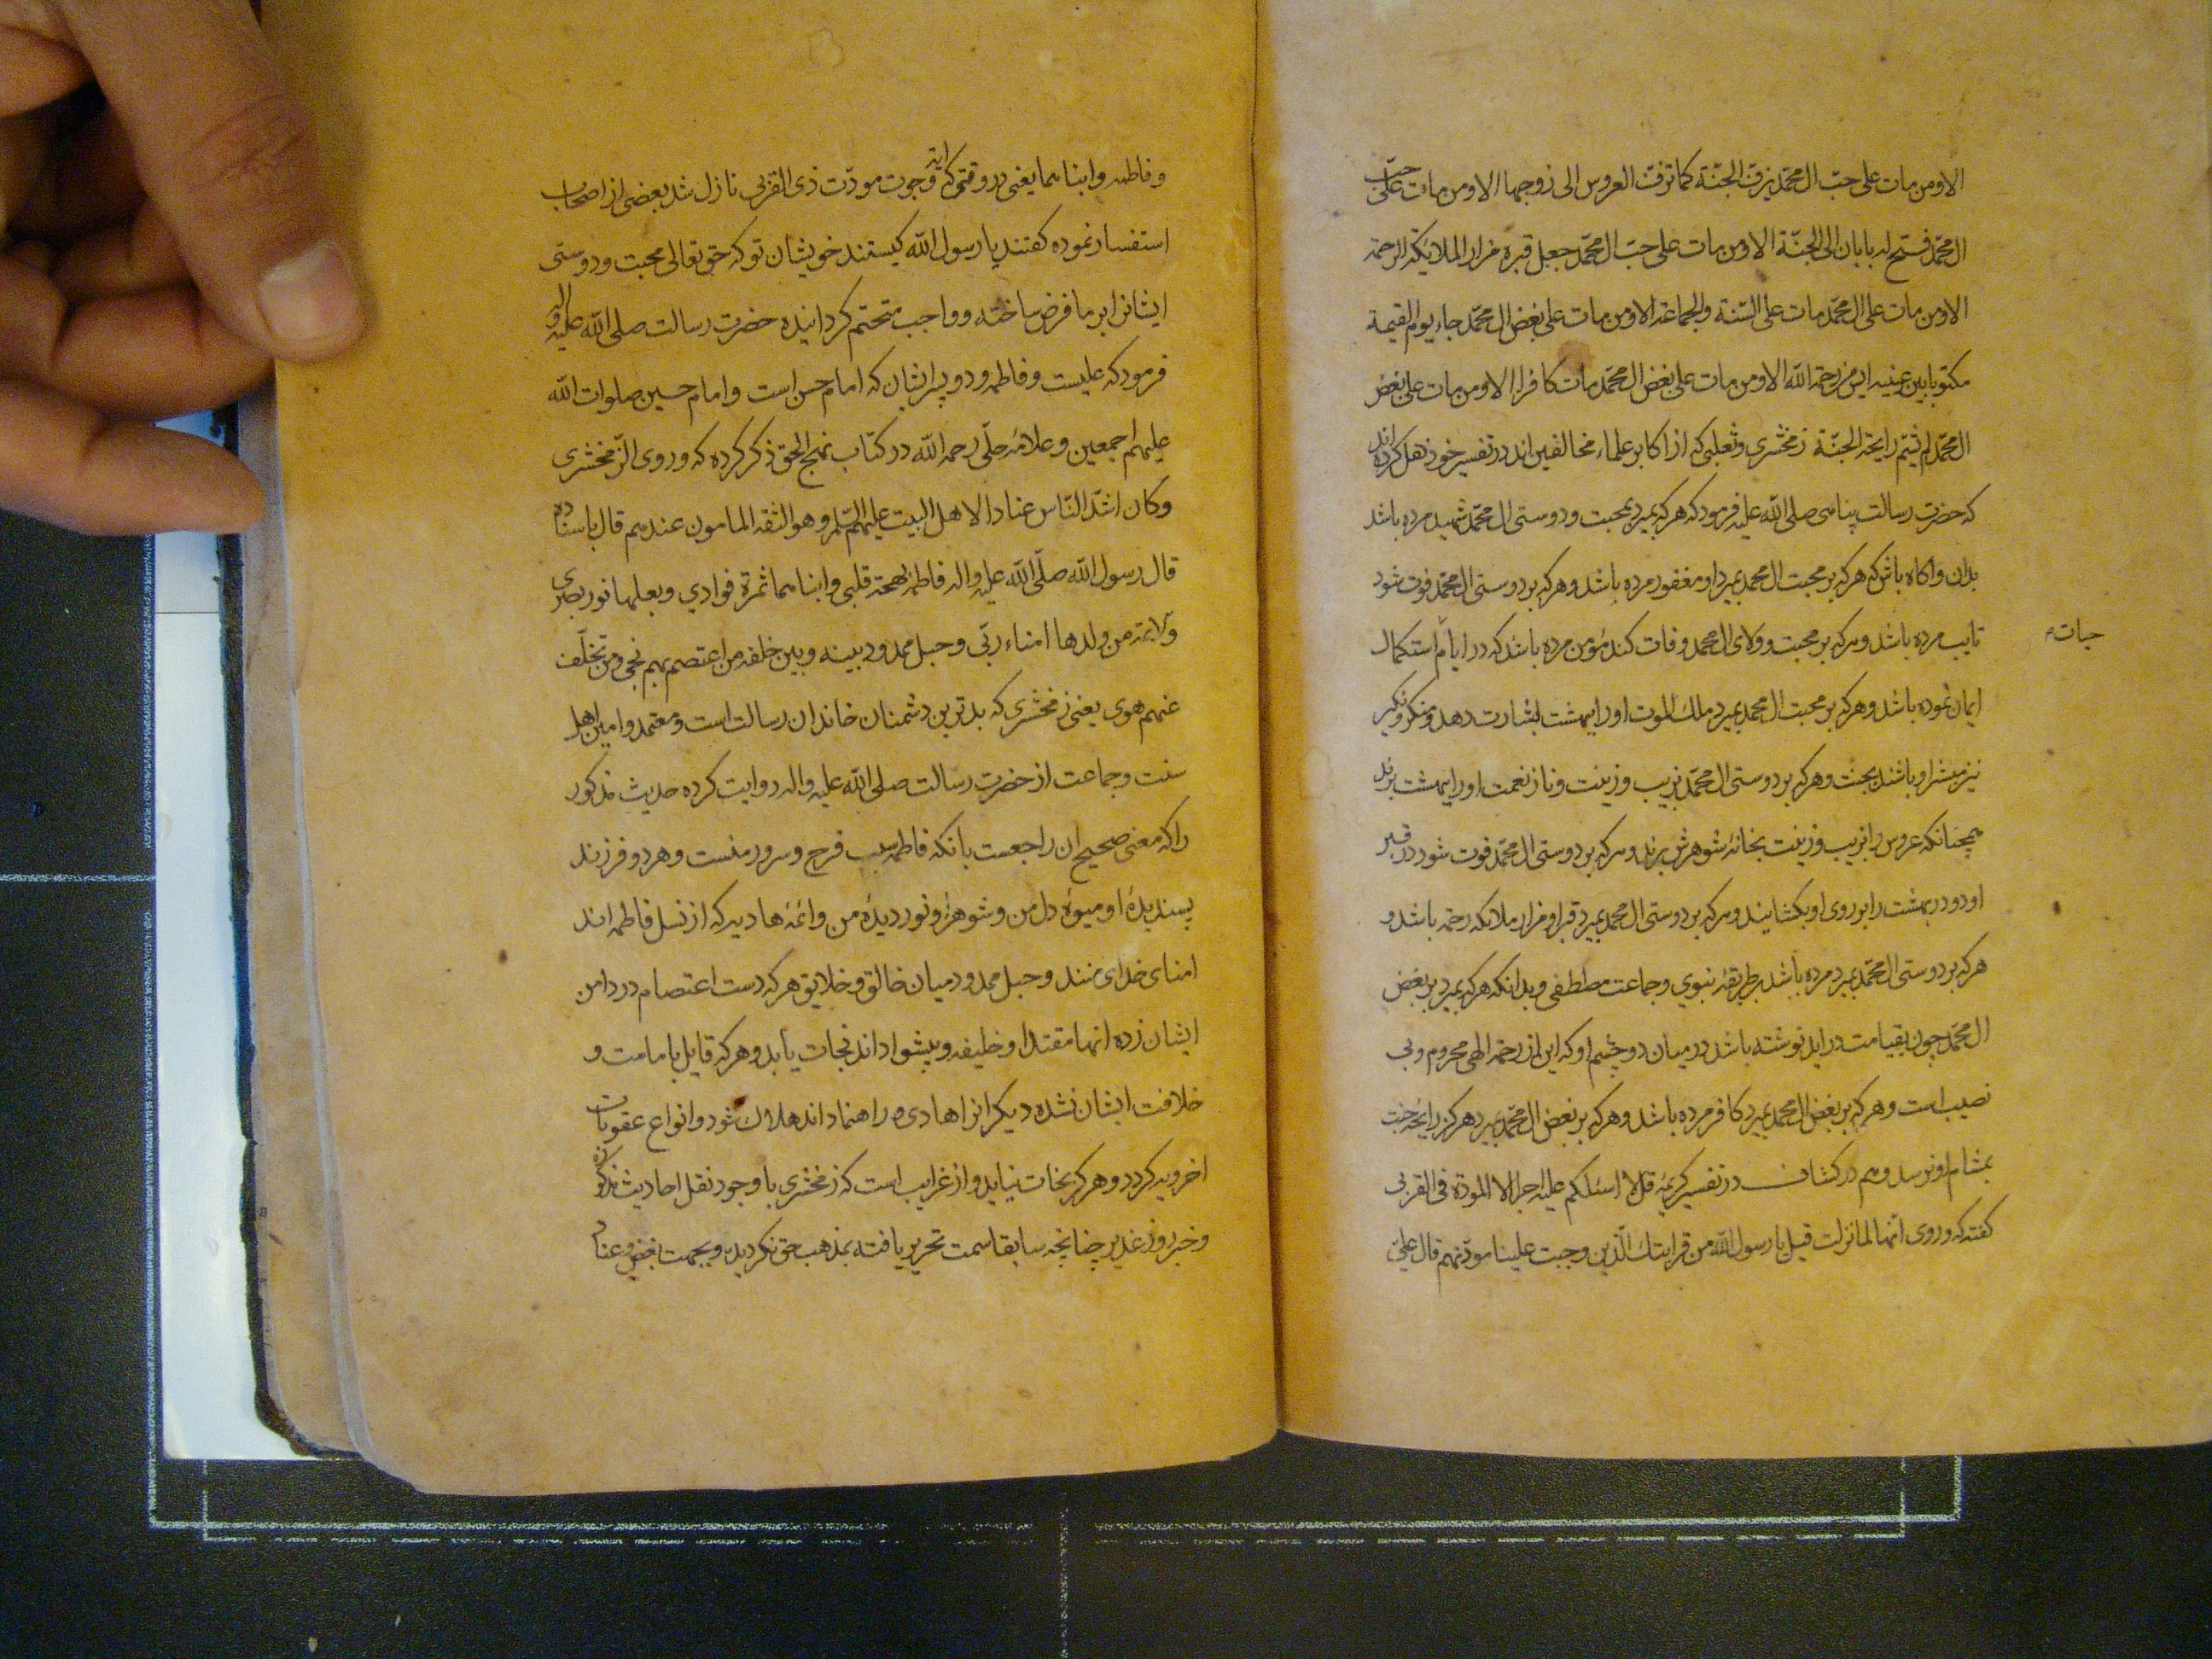 الاومن مات علی حبّ ال محمّد یزفّ الجنّة کما تزفّ العروس الی زوجها الاومن مات علی حبّ
ال محمّد فتح له بابان الی الجنّة الاومن مات علی حبّ ال محمّد جعل قبره مزار الملایکة الرحمة
الاومن مات علی ال محمّد مات علی السّنة والجماعة الاومن مات علی بغض ال محمّد جاء یوم القیمة
مکتوبا بین عینیه ایس من رحمة الله الاومن مات علی بغض ال محمّد مات کافرا الاومن مات علی بغض
ال محمّد لم یشم رایحة الجنّة زمخشری وثعلبی که از اکابر علماء مخالفین اند در تفسیر خود نقل کرده اند
که حضرت رسالت پناهی صلی الله علیه فرمود که هرکه بمیرد بمحبت و دوستی ال محمّد شهید مرده باشد
بدان واکاه باش که هرکه بر محبت ال محمد بمیرد او مغفور مرده باشد وهرکه بر دوستی ال محمّد فوت شود
تایب مرده باشد وهرکه بر محبت وولای ال محمد وفات کند مؤمن مرده باشد که در ایام استکمال
حیات
ایمان نموده باشد وهرکه بر محبت ال محمد بمیرد ملک الموت اورا ببهشت بشارت دهد ومنکر ونکیر
نیز مبشر او باشند بجنت وهرکه بر دوستی ال محمّد بزیب وزینت وناز نعمت اورا ببهشت برند
همچنانکه عروس را بزیب وزینت بخانۀ شوهرش برند وهرکه بر دوستی ال محمّد فوت شود در قبر
او دو در بهشت را بروی او بکشایند وهرکه بر دوستی ال محمد بمیرد قبر او مزار ملائکه رحمة باشد و
هرکه بر دوستی ال محمّد بمیرد مرده باشد بر طریقۀ نبوی وجماعت مصطفی وبدانکه هرکه بمیرد بر بغض
ال محمّد چون بقیامت در اید نوشته باشد در میان دو چشم او که این از رحمة الهی محروم وبی
نصیب است وهرکه بر بغض ال محمد بمیرد کافر مرده باشد وهرکه بر بغض ال محمّد بمیرد هرکز رایحۀ جنت
بمشام او نرسد وهم در کشاف در تفسیر کریمۀ قل لا اسئلکم علیه اجرا الا المودة فی القربی
کفته که وروی انّها لما نزلت قیل یا رسول الله من قرابتك الّذین وجبت علینا مودّتهم قال علیّ
وفاطمه وابناهما یعنی در وقتی که ایة وجوب مودّت ذی القربی نازل شد بعضی از اصحاب
استفسار نموده کفتند یا رسول الله کیستند خویشان تو که حق تعالی محبت ودوستی
ایشانرا بر ما فرض ساخته وواجب متحتم کردانیده حضرت رسالت صلی الله علیه واله
فرمود که علیست وفاطمه ودو پسر ایشان که امام حسن است وامام حسین صلوات الله
علیهم اجمعین وعلامۀ حلّی رحمه الله در کتاب نهج الحق ذکر کرده که وروی الزمخشری
وکان اشدّ النّاس عنادا لاهل البیت علیهم السّلم وهو الثقه المامون عندهم قال باسناده
قال رسول الله صلّی الله علیه واله فاطمه بهجة قلبی وابناهما ثمرة فوادی وبعلها نور بصری
ولائمة من ولدها امناء ربّی وحبل ممدود بینه وبین خلقه من اعتصم بهم نجی ومن تخلّف
عنهم هوی یعنی زمخشری که بدترین دشمنان خاندان رسالت است ومعتمد وامین اهل
سنت وجماعت از حضرت رسالت صلی الله علیه واله روایت کرده حدیث مذکور
را که معنی صحیح ان راجعست بانکه فاطمه سبب فرح وسرور منست وهر دو فرزند
پسندیدۀ او میوۀ دل من وشوهر او نور دیدۀ من وائمۀ هادیه که از نسل فاطمه اند
امنای خدای منند وحبل ممدود میان خالق وخلایق هرکه دست اعتصام در دامن
ایشان زده انها مقتدا وخلیفه وپیشوا داند نجات یابد وهرکه قایل بامامت و
خلافت ایشان نشده دیکرانرا هادی وراهنما داند هلاك شود وانواع عقوبات
اخرویه کردد وهرکز نجات نیابد واز غرایب است که زمخشری با وجود نقل احادیث مذکوره
وخبر روز غدیر چنانچه سابقا سمت تحریر یافته بمذهب حق نکردیده وبجهت بغض وعناد